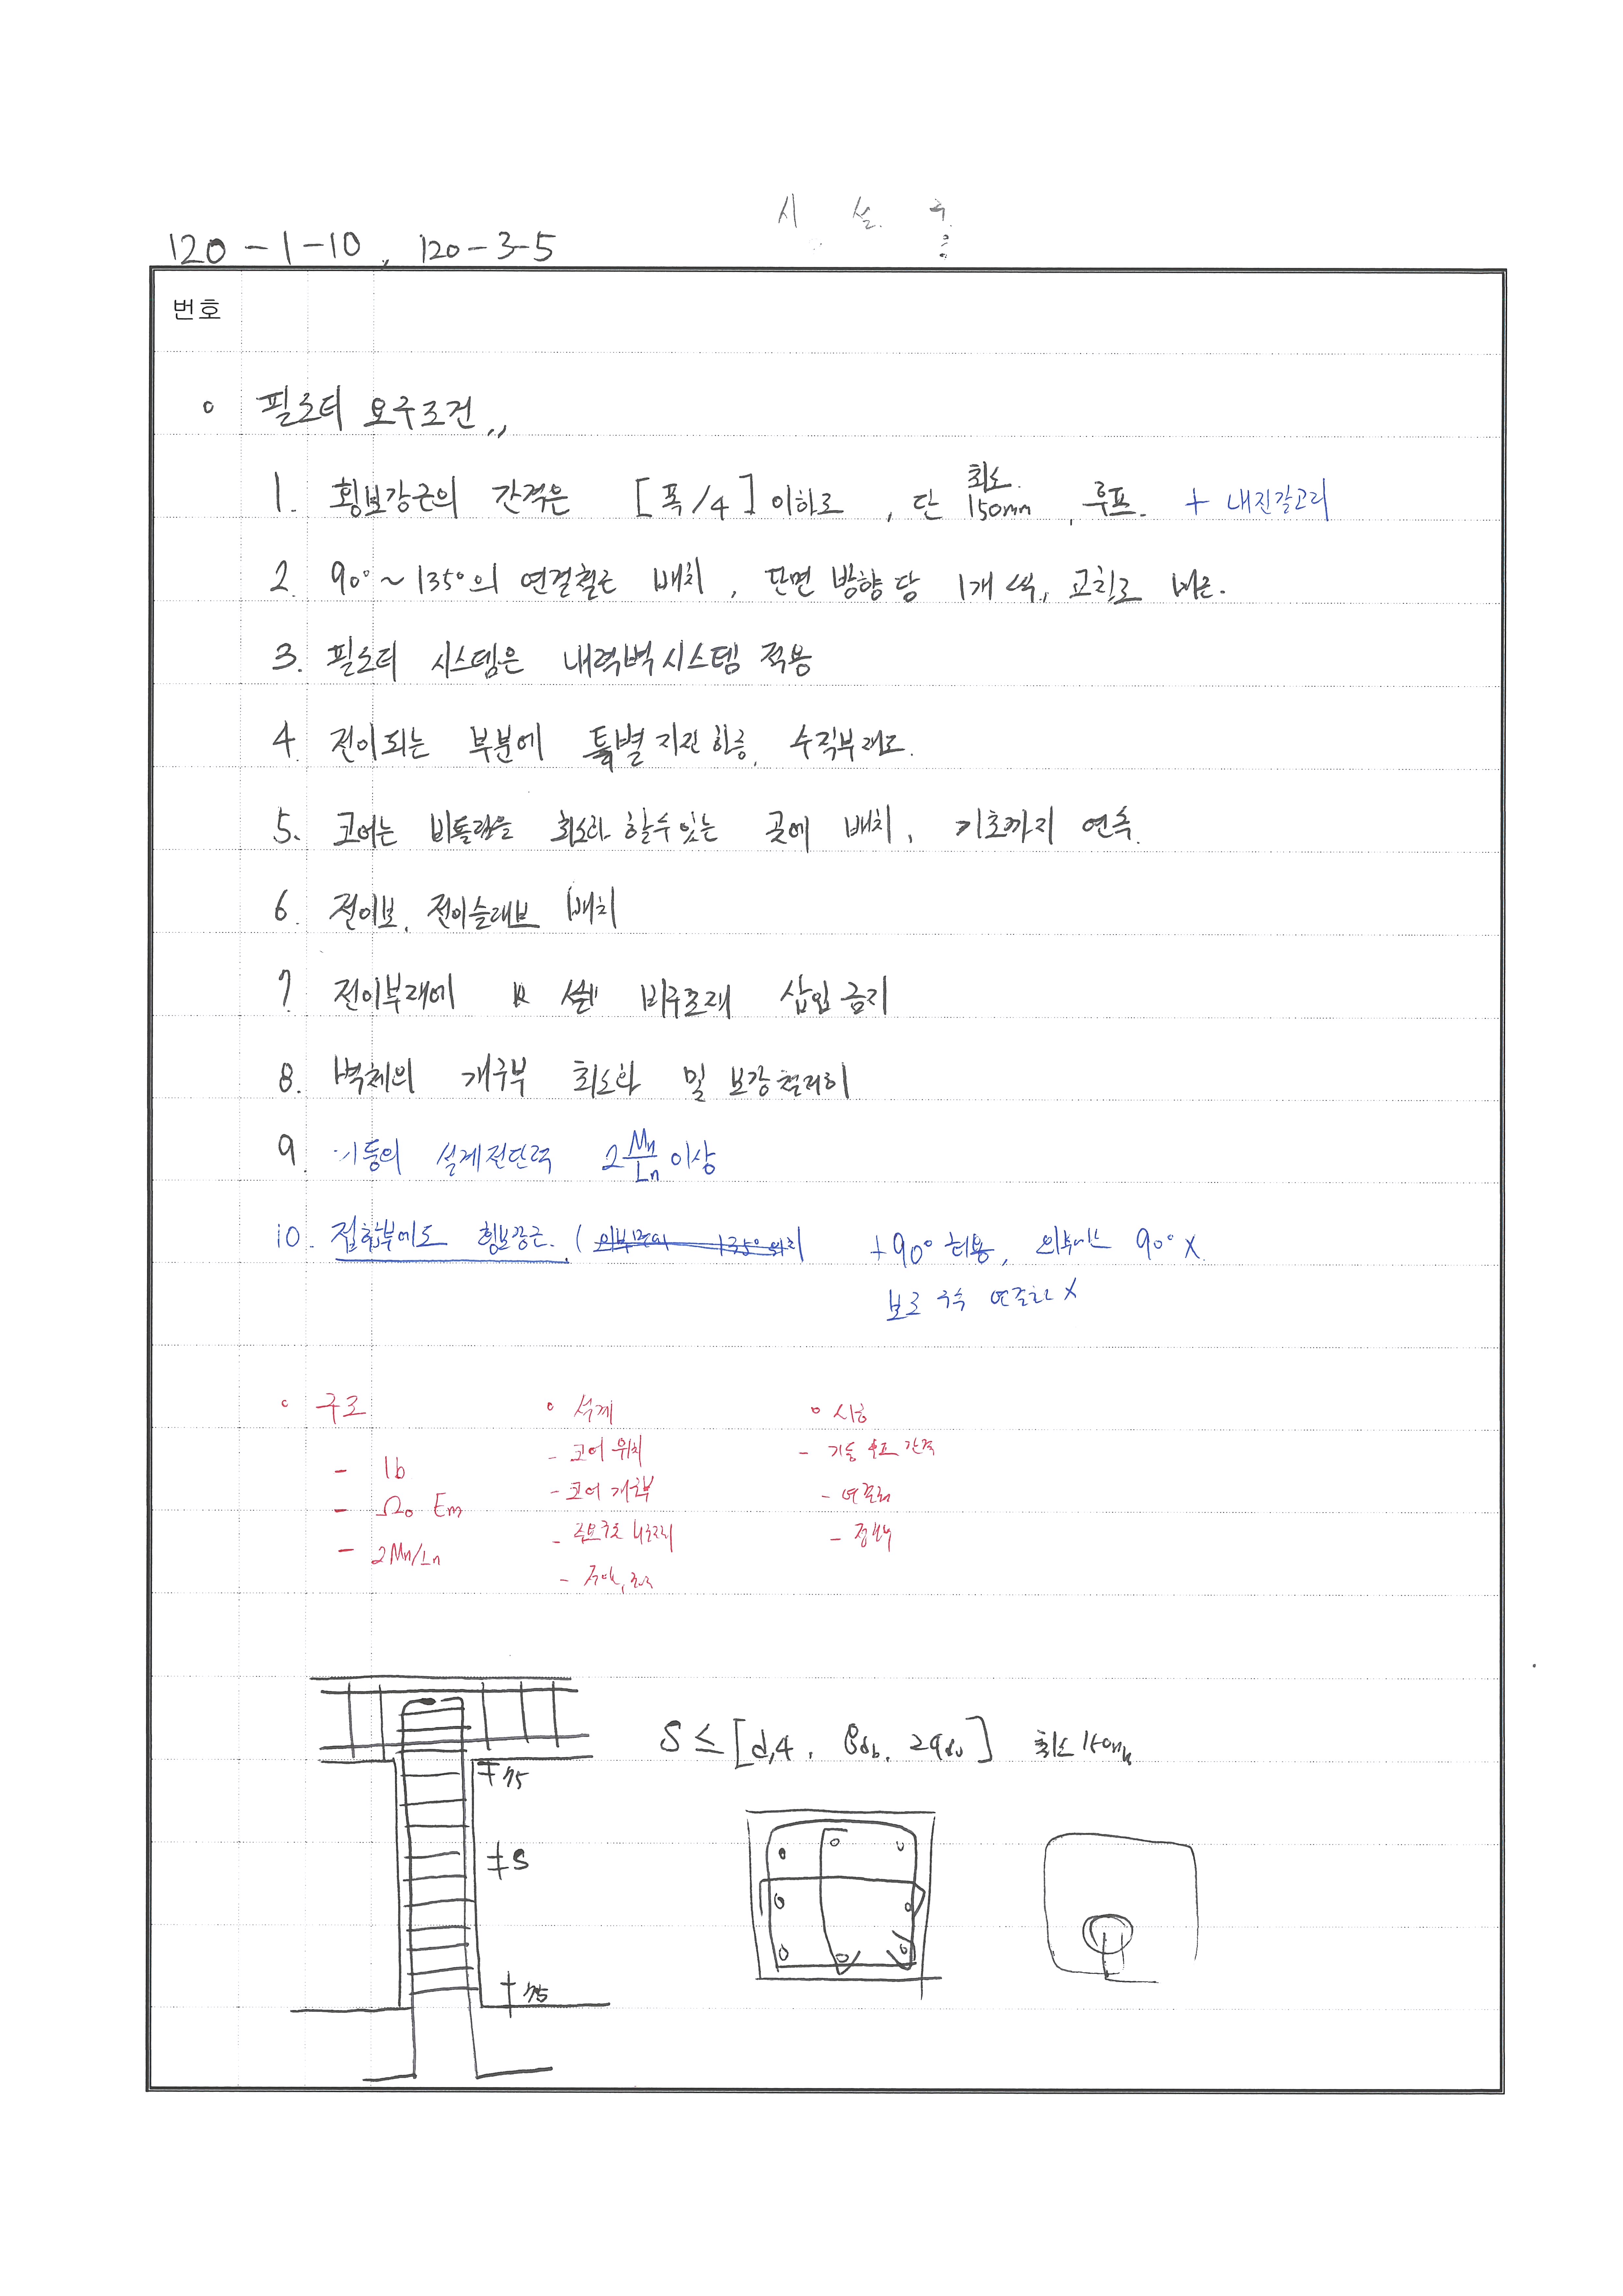 시 설 구
120-1-10, 120-3-5
번호
o 필로티 요구조건,,
1. 횡보강근의 간격은 [폭/4] 이하로, 단 최소 150mm, 후프. + 내진갈고리
2. 90°~135°의 연결철근 배치, 단면 방향 당 1개씩, 교차로 배근.
3. 필로티 시스템은 내력벽시스템 적용
4. 전이되는 부분에 특별지진하중, 수직부재도.
5. 코어는 비틀림을 최소화 할수있는 곳에 배치, 기초까지 연속.
6. 전이보, 전이슬래브 배치
7 전이부재에 비구조재 삽입금지
8. 벽체의 개구부 최소화 및 보강철저히
9. 기둥의 설계전단력 2 Mn/Ln 이상
10. 접합부에도 횡보강근. ( +90° 허용, 외부에는 90° X.
보로 구속 연결하 X
o 구조 o 설계 o 시공
- lb - 코어 위치 - 기둥 후프 간격
- Ω0 Em - 코어 개구부 - 연결근
- 2Mn/Ln - 정착
S ≤ [d/4, 8db, 24db] 최소 150mm
75
S
75